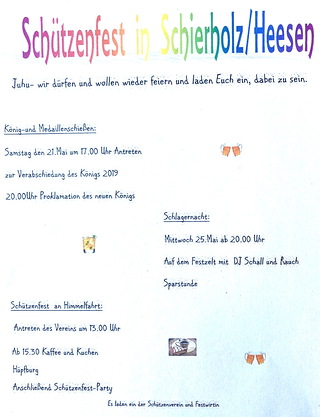 Schützenfest in Schierholz/Heesen
Juhu- wir dürfen und wollen wieder feiern und laden Euch ein, dabei zu sein.
König-und Medaillenschießen:
Samstag den 21.Mai um 17.00 Uhr Antreten
zur Verabschiedung des Königs 2019
20.00Uhr Proklamation des neuen Königs
Schlagernacht:
Mittwoch 25.Mai ab 20.00 Uhr
Auf dem Festzelt mit DJ Schall und Rauch
Sparstunde
Schützenfest an Himmelfahrt:
Antreten des Vereins um 13.00 Uhr
Ab 15.30 Kaffee und Kuchen
Hüpfburg
Anschließend Schützenfest-Party
Es laden ein der Schützenverein und Festwirtin